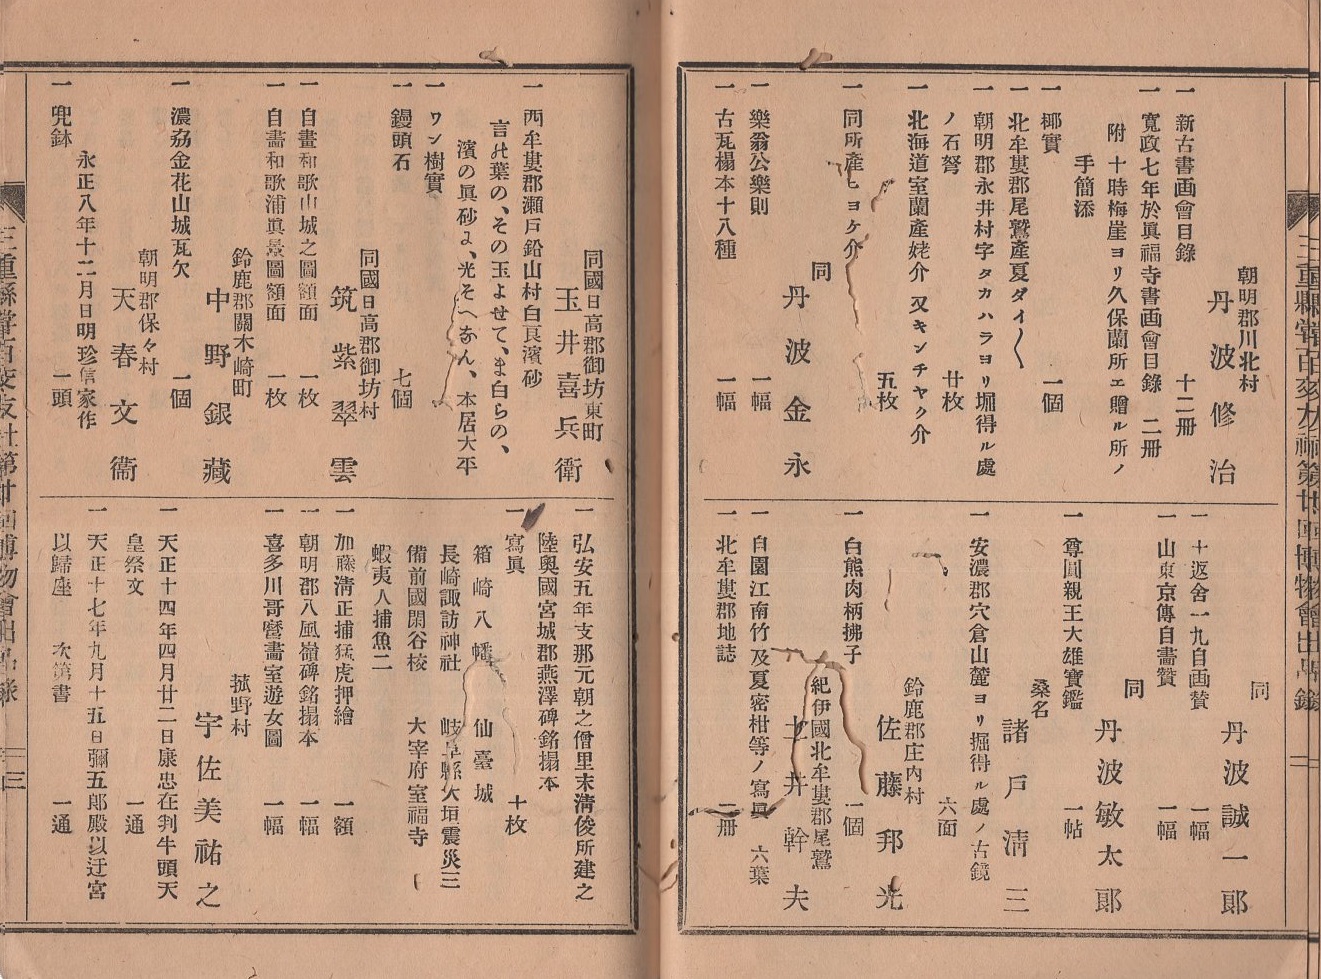 三重縣堂百亥友社第廿回博物會出品錄
二
朝明郡川北村
丹波修治
一 新古書画會目錄 十二册
一 寬政七年於眞福寺書画會目錄 二册
附 十時梅崖ヨリ久保蘭所エ贈ル所ノ
手簡添
一 椰實 一個
一 北牟婁郡尾鷲產夏ダイ〱
一 朝明郡永井村字タカハラヨリ堀得ル處
ノ石弩 廿枚
一 北海道室蘭產姥介 又キンチヤク介
五枚
一 同所產ヒヨケ介
同
丹波金永
一 樂翁公樂則 一幅
一 古瓦榻本十八種 一幅
同
丹波誠一郞
一 十返舍一九自画賛 一幅
一 山東京傳自畵賛 一幅
同
丹波敏太郞
一 尊圓親王大雄寶鑑 一帖
桑名
諸戶淸三
一 安濃郡穴倉山麓ヨリ掘得ル處ノ古鏡
六面
鈴鹿郡庄内村
佐藤邦光
一 白熊肉柄拂子 一個
紀伊國北牟婁郡尾鷲
土井幹夫
一 自園江南竹及夏密柑等ノ寫眞 六葉
一 北牟婁郡地誌 二册
同國日高郡御坊東町
玉井喜兵衛
一 西牟婁郡瀬戶鉛山村白良濱砂
言の葉の、その玉よせて、ま白らの、
濱の眞砂よ、光そへなん、本居大平
一 ワン樹實
一 饅頭石 七個
同國日高郡御坊村
筑紫翠雲
一 自畫和歌山城之圖額面 一枚
一 自畵和歌浦眞景圖額面 一枚
鈴鹿郡關木崎町
中野銀藏
一 濃劦金花山城瓦欠 一個
朝明郡保々村
天春文衞
永正八年十二月日明珍信家作
一 兜鉢 一頭
一 弘安五年支那元朝之僧里末淸俊所建之
陸奧國宮城郡燕澤碑銘搨本
一 寫眞 十枚
箱崎八幡 仙臺城
長崎諏訪神社 岐阜縣大垣震災三
備前國閑谷校 大宰府室福寺
蝦夷人捕魚二
一 加藤淸正捕猛虎押繪 一額
一 朝明郡八風嶺碑銘搨本 一幅
一 喜多川哥麿畵室遊女圖 一幅
菰野村
宇佐美祐之
一 天正十四年四月廿二日康忠在判牛頭天
皇祭文 一通
一 天正十七年九月十五日彌五郎殿以迂宮
以歸座 次第書 一通
三重縣堂百亥友社第廿回博物會出品錄
三